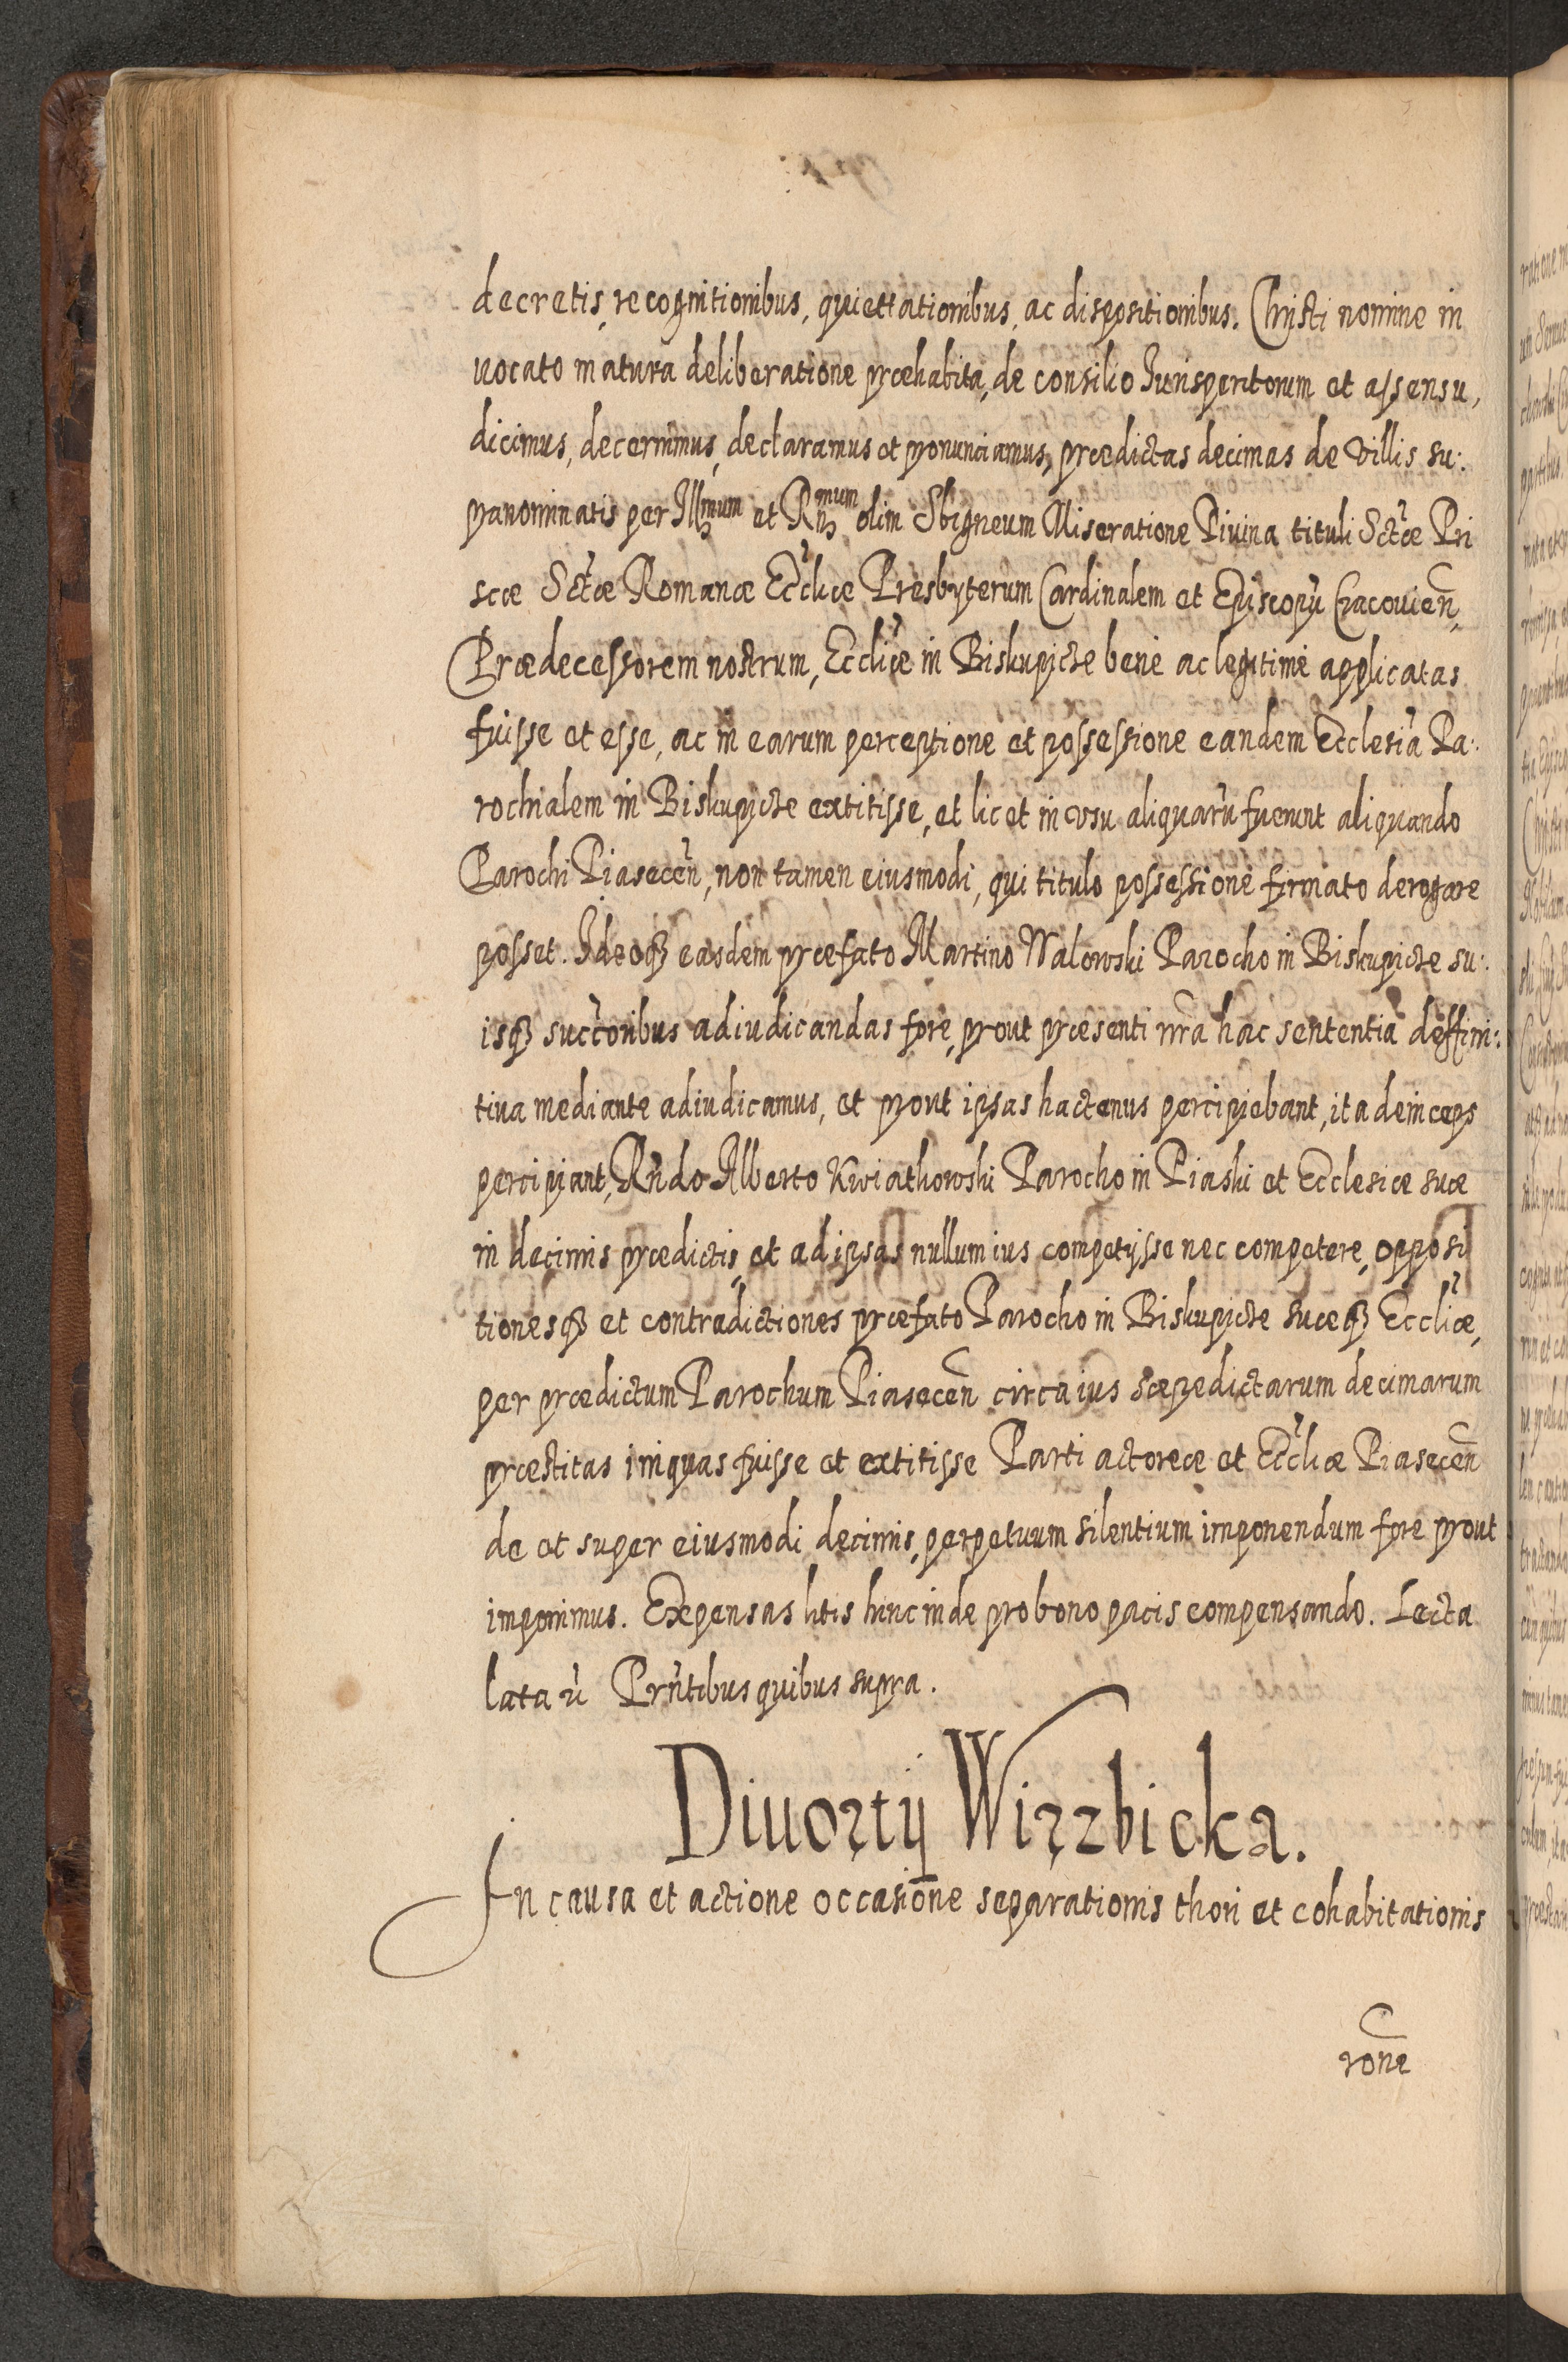 decretis, recognitionibus, quiettationibus, ac dispositionibus. Christi nomine in
uocato matura deliberatione præhabita, de consilio Iurisperitorum et assensu,
dicimus, decernimus, declaramus et pronunciamus, prædictas decimas de villis su:
pranominatis per Illmum et Rmum olim Sbigneum Miseratione Diuina tituli Sctæ Pri
scæ Sctæ Romanæ Ecclìæ Presbyterum Cardinalem et Episcopũ Cracouien̄,
Prædecessorem nostrum, Ecclìæ in Biskupicze bene ac legitimè applicatas
fuisse et esse, ac in earum perceptione et possessione eandem Ecclesiã Pa:
rochialem in Biskupicze extitisse, et licet in vsu aliquarũ fuerunt aliquando
Parochi Piasecen̄, non tamen eiusmodi, qui titulo possessione firmato derogare
posset. Ideoqȝ easdem præfato Martino Walowski Parocho in Biskupicze su:
isqȝ succ̀oribus adiudicandas fore, prout præsenti nr̄a hac sententia deffini:
tiua mediante adiudicamus, et prout ipsas hactenus percipiebant, ita deinceps
percipiant, Rǹdo Alberto Kwiatkowski Parocho in Piaski et Ecclesiæ suæ
in decimis prædictis, et ad ipsas nullum ius competijsse nec competere, opposi
tionesqȝ et contradictiones præfato Parocho in Biskupicze suæqȝ Ecclìæ,
per prædictum Parochum Piasecen̄ circa ius sæpedictarum decimarum
præstitas iniquas fuisse et extitisse Parti actoreæ et Ecclìæ Piasecen̄
de et super eiusmodi decimis, perpetuum silentium imponendum fore prout
imponimus. Expensas litis hinc inde pro bono pacis compensando. Lecta
lata ũ Prǹtibus quibus supra.
Diuortij Wirzbicka.
In causa et actione occasione separationis thori et cohabitationis
ron̄e